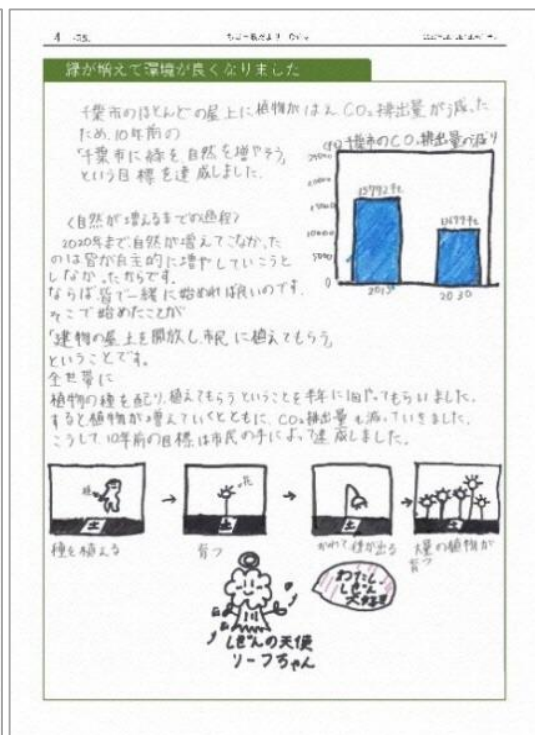 4
緑が増えて環境が良くなりました
千葉市のほとんどの屋上に植物がはえ、CO₂排出量が減った
ため、10年前の
「千葉市に緑を、自然を増やそう」
という目標を達成しました。
千葉市のCO₂排出量の減り
15000
10000
5000
0
2030
〈自然が増えるまでの過程〉
2020年まで自然が増えてこなかった
のは皆が自主的に増やしていこうと
しなかったからです。
ならば皆で一緒に始めれば良いのです。
そこで始めたことが
「建物の屋上を開放し、市民に植えてもらう」
ということです。
全世帯に
植物の種を配り、植えてもらうということを半年に1回やってもらいました。
すると植物が増えていくとともに、CO₂排出量も減っていきました。
こうして、10年前の目標は市民の手によって達成しました。
種
花
土
土
土
土
種を植える
育つ
かれて種が出る
大量の植物が
育つ
わたし、
しぜん
大好き
しぜんの天使
リーフちゃん